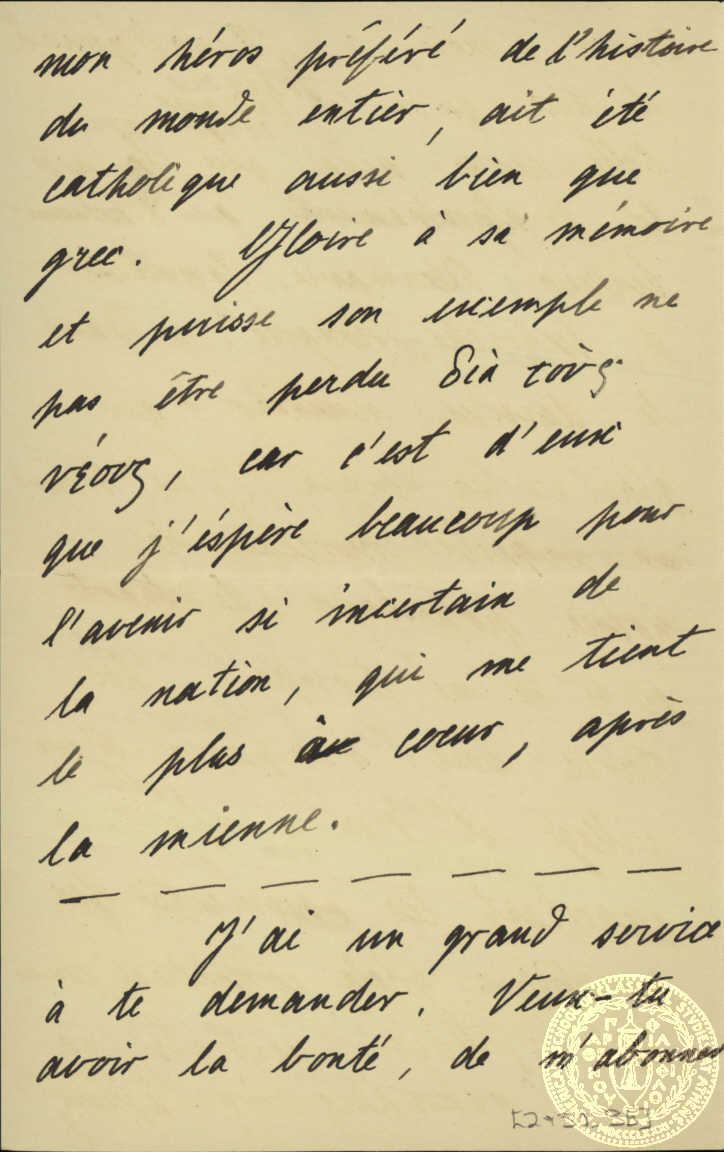 mon héros préféré de l'histoire
du monde entier, ait été
catholique aussi bien que
grec. Gloire à sa mémoire
et puisse son exemple ne
pas être perdu διὰ τοὺς
νέους, car c'est d'eux
que j'éspère beaucoup pour
l'avenir si incertain de
la nation, qui me tient
le plus à coeur, après
la mienne.
J'ai un grand service
à te demander. Veux-tu
avoir la bonté, de m'abonner